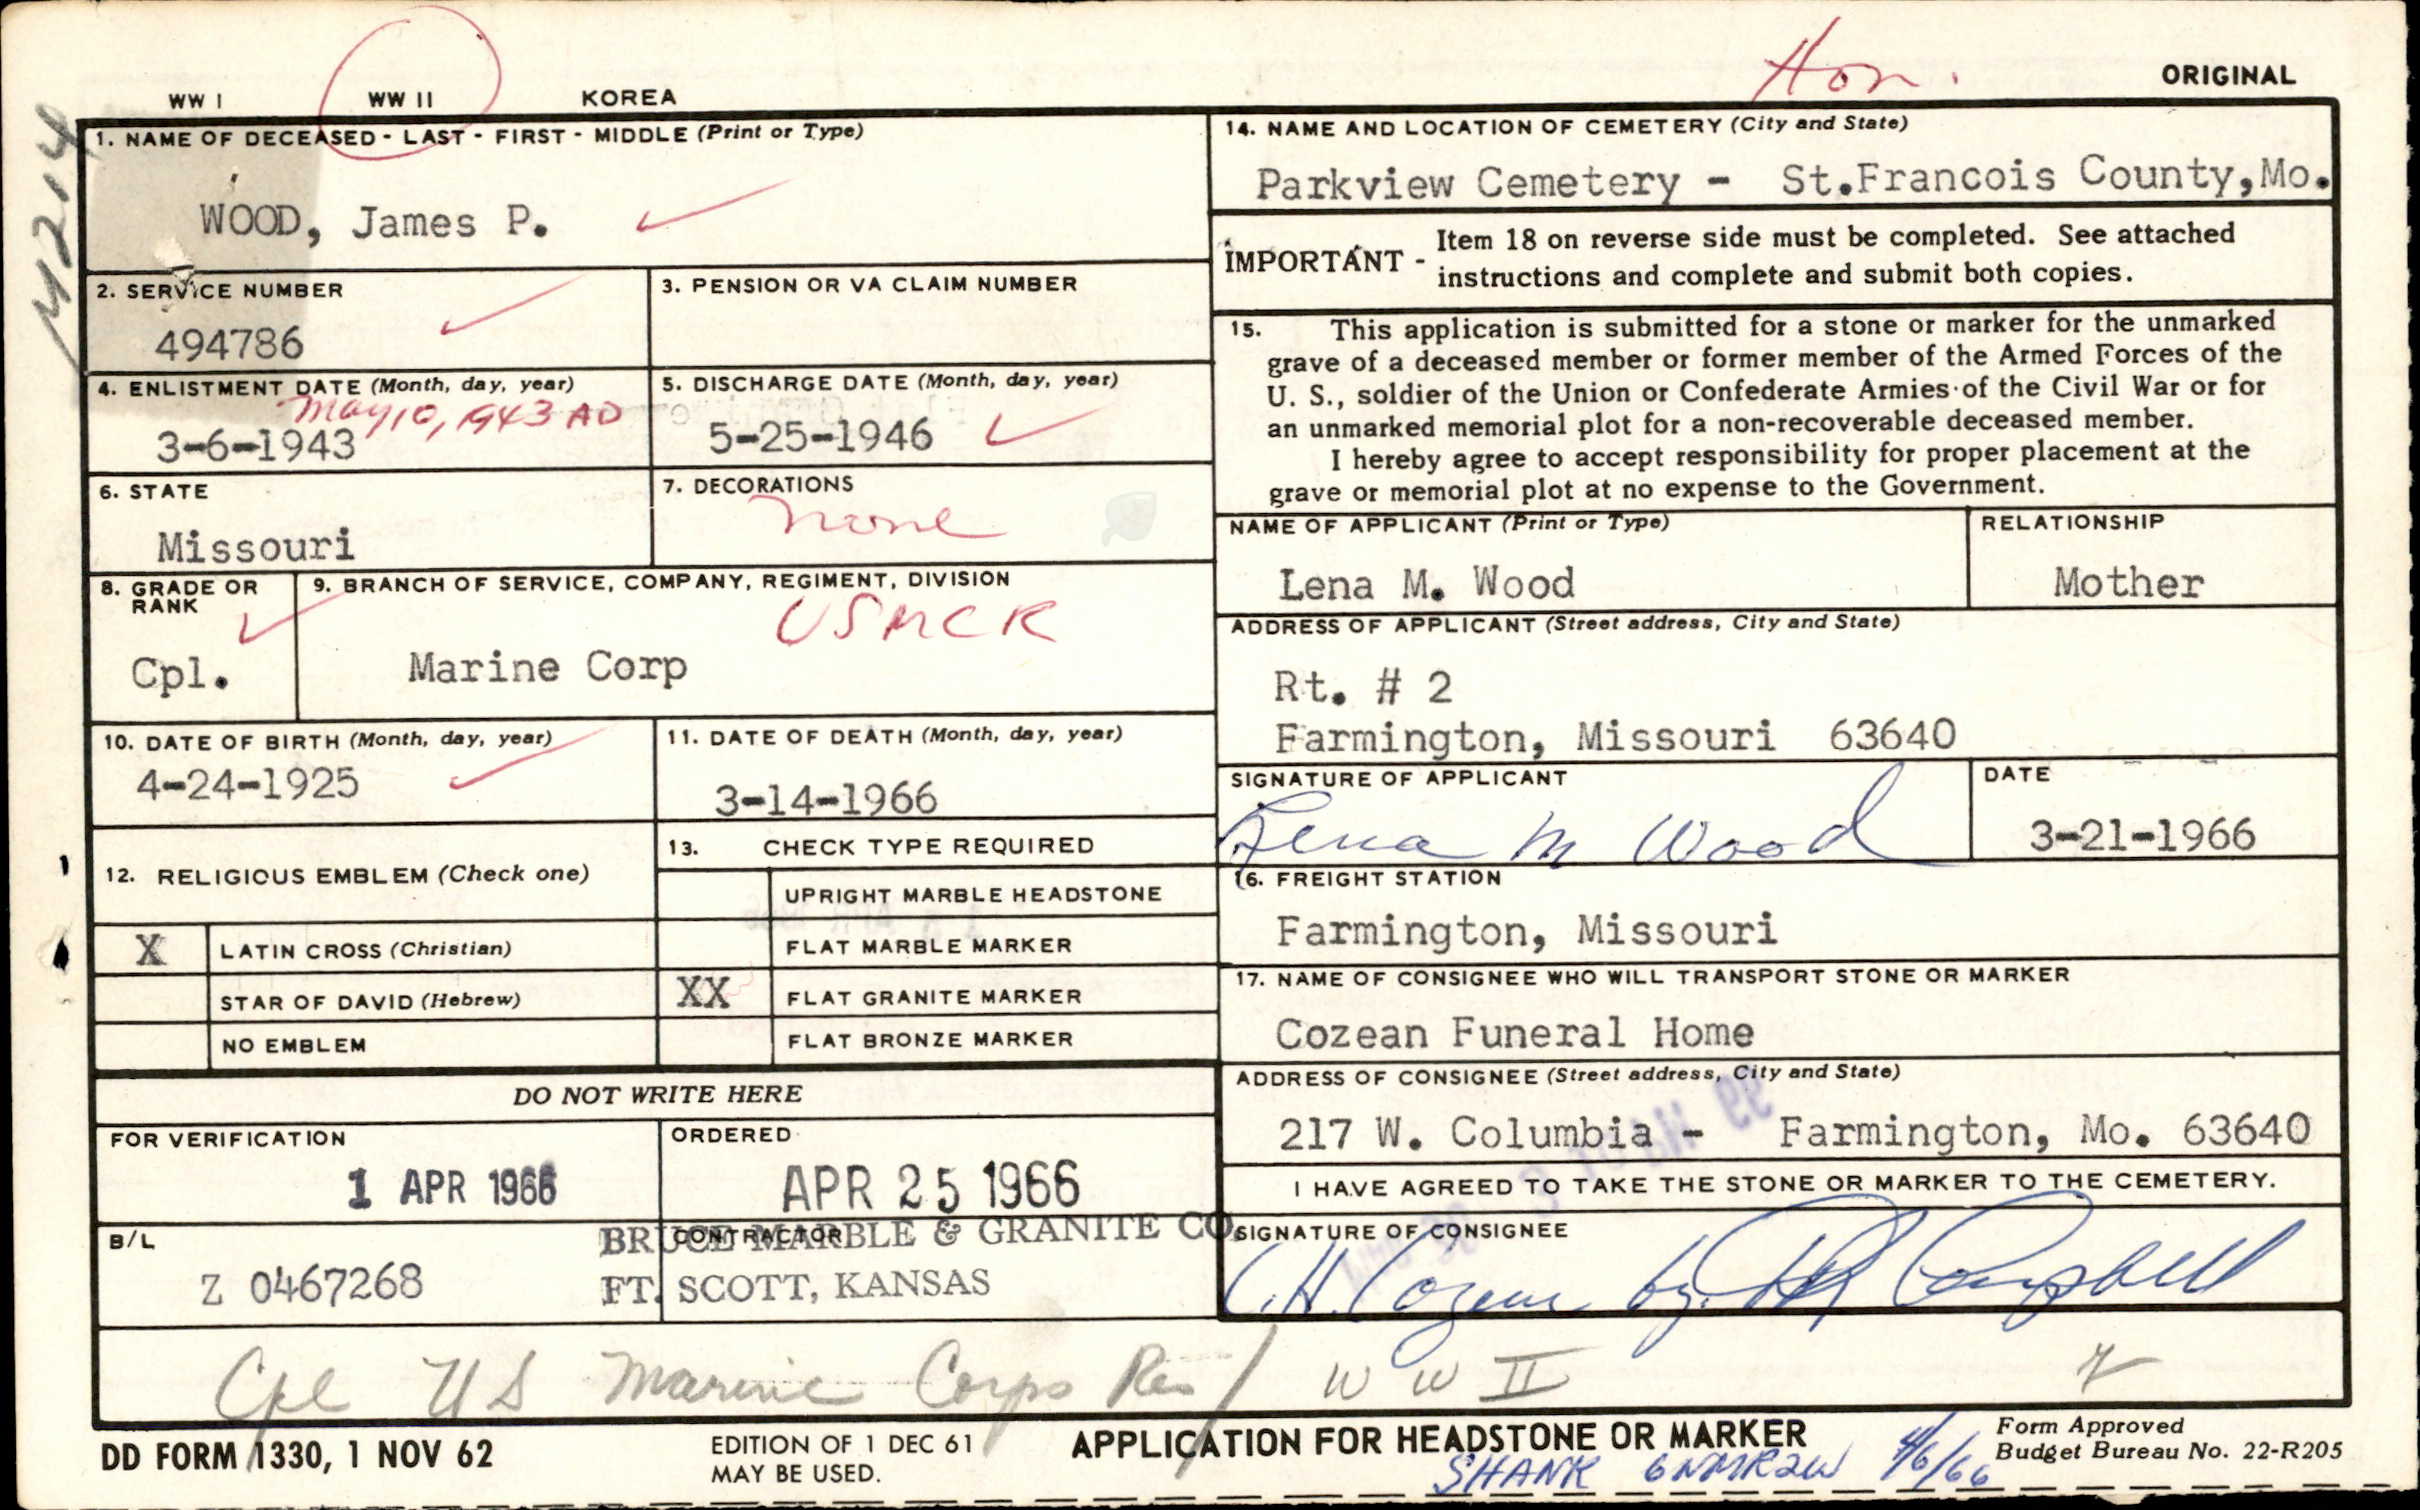 Hon.
ORIGINAL
WW I WW II KOREA
4214
1. NAME OF DECEASED - LAST - FIRST - MIDDLE (Print or Type)
WOOD, James P.
2. SERVICE NUMBER
494786
3. PENSION OR VA CLAIM NUMBER
4. ENLISTMENT DATE (Month, day, year)
May 10, 1943 AD
3-6-1943
5. DISCHARGE DATE (Month, day, year)
5-25-1946
6. STATE
Missouri
7. DECORATIONS
None
8. GRADE OR
RANK
Cpl.
9. BRANCH OF SERVICE, COMPANY, REGIMENT, DIVISION
USMCR
Marine Corp
10. DATE OF BIRTH (Month, day, year)
4-24-1925
11. DATE OF DEATH (Month, day, year)
3-14-1966
12. RELIGIOUS EMBLEM (Check one)
X LATIN CROSS (Christian)
STAR OF DAVID (Hebrew)
NO EMBLEM
13. CHECK TYPE REQUIRED
UPRIGHT MARBLE HEADSTONE
FLAT MARBLE MARKER
XX FLAT GRANITE MARKER
FLAT BRONZE MARKER
DO NOT WRITE HERE
FOR VERIFICATION
1 APR 1966
ORDERED
APR 25 1966
B/L
Z 0467268
CONTRACTOR
BRUCE MARBLE & GRANITE CO.
FT. SCOTT, KANSAS
14. NAME AND LOCATION OF CEMETERY (City and State)
Parkview Cemetery - St.Francois County,Mo.
IMPORTANT - Item 18 on reverse side must be completed. See attached
instructions and complete and submit both copies.
15. This application is submitted for a stone or marker for the unmarked
grave of a deceased member or former member of the Armed Forces of the
U. S., soldier of the Union or Confederate Armies of the Civil War or for
an unmarked memorial plot for a non-recoverable deceased member.
I hereby agree to accept responsibility for proper placement at the
grave or memorial plot at no expense to the Government.
NAME OF APPLICANT (Print or Type)
Lena M. Wood
RELATIONSHIP
Mother
ADDRESS OF APPLICANT (Street address, City and State)
Rt. # 2
Farmington, Missouri 63640
SIGNATURE OF APPLICANT
Lena M Wood
DATE
3-21-1966
16. FREIGHT STATION
Farmington, Missouri
17. NAME OF CONSIGNEE WHO WILL TRANSPORT STONE OR MARKER
Cozean Funeral Home
ADDRESS OF CONSIGNEE (Street address, City and State)
217 W. Columbia - Farmington, Mo. 63640
I HAVE AGREED TO TAKE THE STONE OR MARKER TO THE CEMETERY.
SIGNATURE OF CONSIGNEE
C.H. Cozean by Campbell
Cpl US Marine Corps Res / WW II
DD FORM 1330, 1 NOV 62
EDITION OF 1 DEC 61
MAY BE USED.
APPLICATION FOR HEADSTONE OR MARKER
Form Approved
Budget Bureau No. 22-R205
SHANK 4/6/66